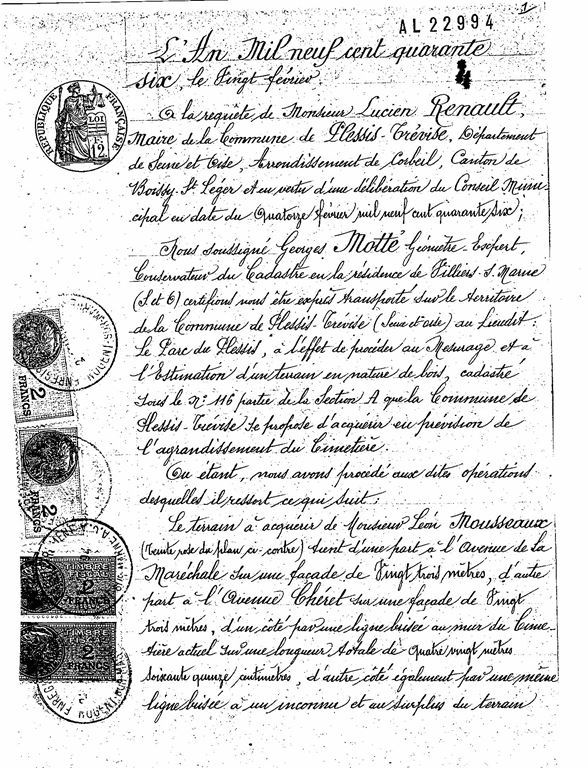 AL 22994
1
L'An Mil neuf cent quarante
six, le Vingt février.
RÉPUBLIQUE FRANÇAISE
LOI
12
A la requête de Monsieur Lucien Renault,
Maire de la Commune de Plessis-Trévise, Département
de Seine et Oise, Arrondissement de Corbeil, Canton de
Boissy-St Léger et en vertu d'une délibération du Conseil Muni-
cipal en date du Quatorze février mil neuf cent quarante six;
Nous soussigné Georges Motte Géomètre-Expert,
Conservateur du Cadastre en la résidence de Villiers-s-Marne
(S et O) certifions nous être exprès transporté sur le territoire
de la Commune de Plessis-Trévise (Seine et oise) au Lieudit:
Le Parc du Plessis, à l'effet de procéder au Mesurage et à
l'Estimation d'un terrain en nature de bois, cadastré
sous le N° 116 partie de la Section A que la Commune de
Plessis-Trévise se propose d'acquérir en prévision de
l'agrandissement du Cimetière.
Ou étant, nous avons procédé aux dites opérations
desquelles il ressort ce qui suit;
Le terrain à acquérir de Monsieur Léon Mousseaux
(Teinte rose du plan ci-contre) tient d'une part à l'Avenue de la
Maréchale sur une façade de Vingt trois mètres, d'autre
part à l'Avenue Chéret sur une façade de Vingt
trois mètres, d'un côté par une ligne brisée au mur du Cime-
tière actuel sur une longueur totale de Quatre vingt mètres
soixante quinze centimètres, d'autre côté également par une même
ligne brisée à un inconnu et au surplus du terrain
2 FRANCS
2 FRANCS
TIMBRE
2
FRANCS
TIMBRE
2
FRANCS